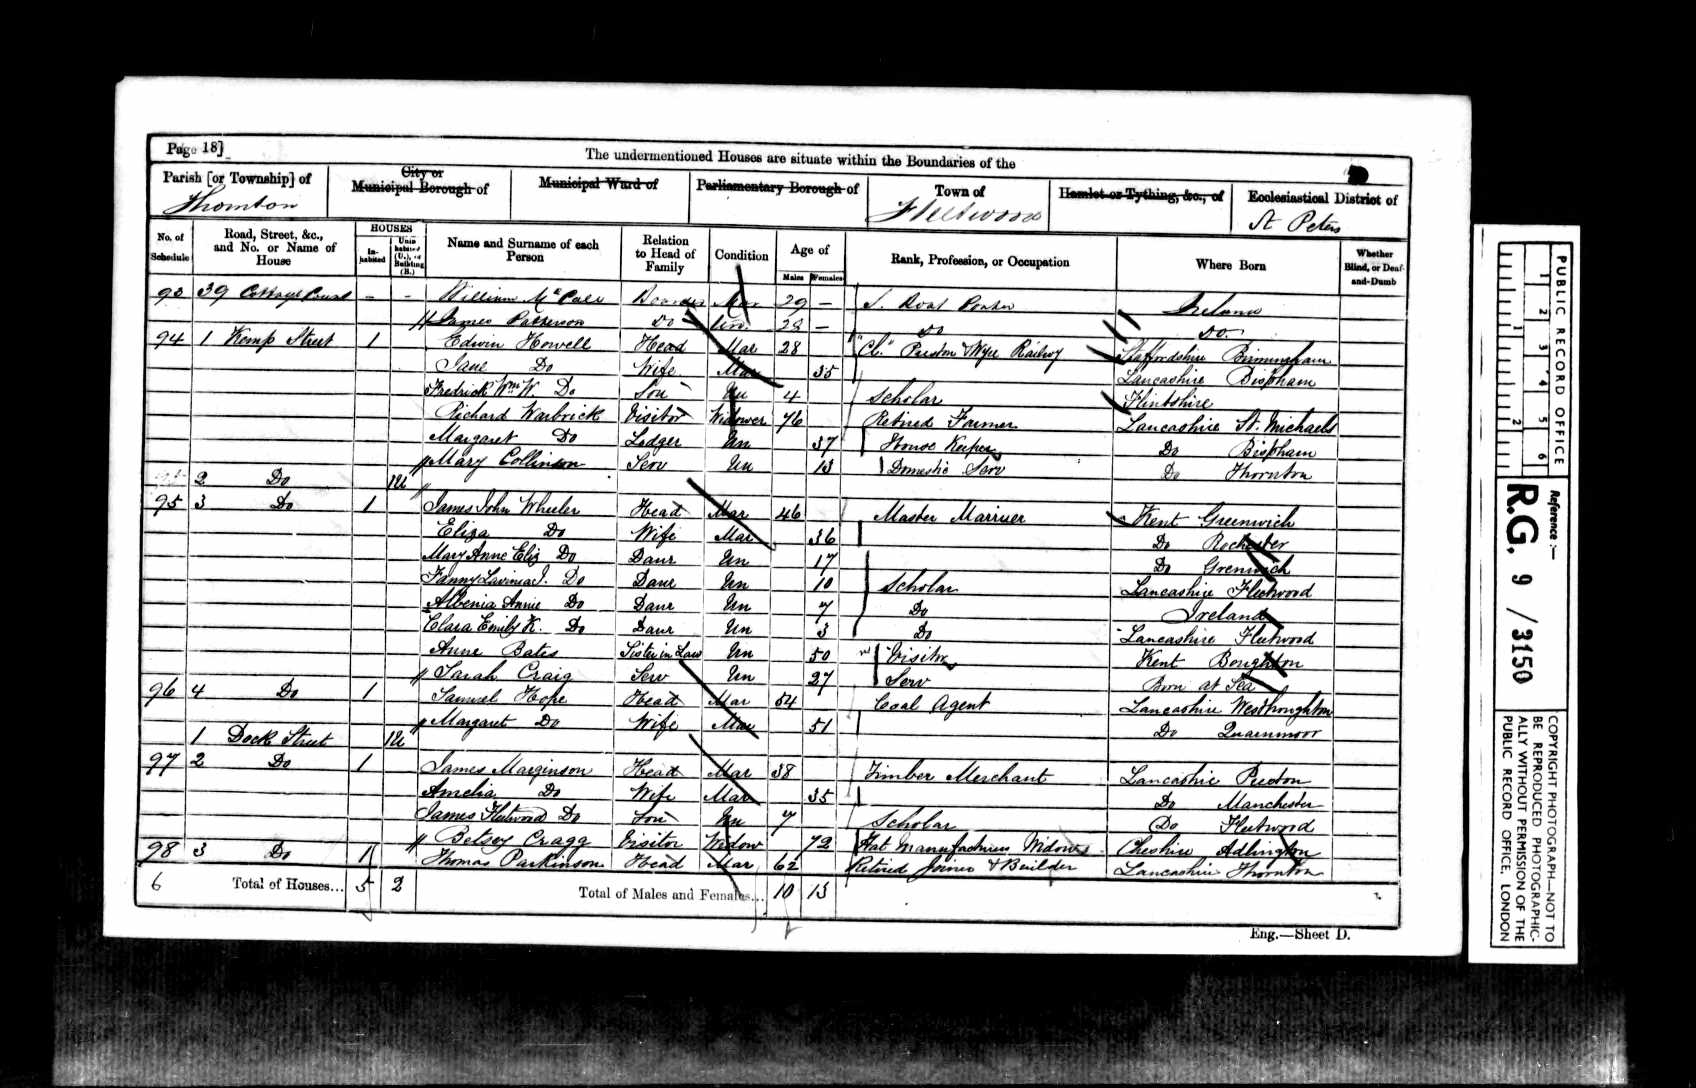 Page 18]
The undermentioned Houses are situate within the Boundaries of the
Parish [or Township] of
City or Municipal Borough of
Municipal Ward of
Parliamentary Borough of
Town of
Hamlet or Tything, &c., of
Ecclesiastical District of
Thornton
Fleetwood
St Peters
No. of Schedule
Road, Street, &c., and No. or Name of House
HOUSES
In-habited
Unin-habited (U.), or Building (B.)
Name and Surname of each Person
Relation to Head of Family
Condition
Age of
Males
Females
Rank, Profession, or Occupation
Where Born
Whether Blind, or Deaf-and-Dumb
93 39 Cottage Court - - William McCall Boarder Mar 29 - Ireland
James Patterson Do Un. 28 - Do Do.
94 1 Kemp Street 1 Edwin Howell Head Mar 28 "Cl." Preston & Wyre Railwy Staffordshire Birmingham
Jane Do Wife Mar 35 Lancashire Bispham
Fredrick Wm W. Do Son Un 4 Scholar Flintshire
Richard Warbrick Visitor Widower 76 Retired Farmer Lancashire St. Michaels
Margaret Do Lodger Un 37 House Keeper Do Bispham
Mary Collinson Serv Un 13 Domestic Serv Do Thornton
2 Do 1U
95 3 Do 1 James John Wheeler Head Mar 46 Master Mariner Kent Greenwich
Eliza Do Wife Mar 36 Do Rochester
Mary Anne Eliz Do Daur Un 17 Do Grenwich
Fanny Lavinia J. Do Daur Un 10 Scholar Lancashire Fleetwood
Albenia Annie Do Daur Un 7 Do Ireland
Clara Emily K. Do Daur Un 3 Do Lancashire Fleetwood
Anne Bates Sister in Law Un 50 Visitor Kent Boughton
Sarah Craig Serv Un 27 Serv Born at Sea
96 4 Do 1 Samuel Hope Head Mar 54 Coal Agent Lancashire Westhoughton
Margaret Do Wife Mar 51 Do Quarnmoor
1 Dock Street 1U
97 2 Do 1 James Marginson Head Mar 38 Timber Merchant Lancashire Preston
Amelia Do Wife Mar 35 Do Manchester
James Fleetwood Do Son Un 7 Scholar Do Fleetwood
Betsey Cragg Visitor Widow 72 Hat Manufacturers Widow Cheshire Adlington
98 3 Do 1 Thomas Parkinson Head Mar 62 Retired Joiner & Builder Lancashire Thornton
6 Total of Houses... 5 2 Total of Males and Females... 10 13
Eng.—Sheet D.
PUBLIC RECORD OFFICE
1 2 3 4 5 6
1 2
Reference :—
R.G. 9 / 3150
COPYRIGHT PHOTOGRAPH—NOT TO
BE REPRODUCED PHOTOGRAPHIC-
ALLY WITHOUT PERMISSION OF THE
PUBLIC RECORD OFFICE, LONDON